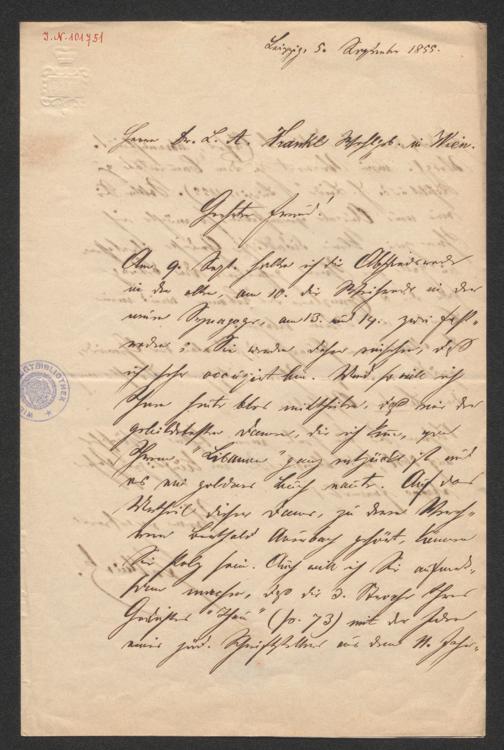 J.N. 101751
Leipzig, 5. September 1855.
Herrn Dr. L. A. Frankl Wohlgeb. in Wien.
Geehrter Freund!
Am 9. Sept. halte ich die Abschiedsrede
in der alten, am 10. die Weiherede in der
neuen Synagoge, am 13. und 14. zwei Fest-
reden; Sie werden daher einsehen, daß
ich sehr occupirt bin. Und so will ich
Ihnen heute blos mittheilen, daß eine der
gebildetsten Damen, die ich kenne, von
Ihrem "Libanon" ganz entzückt ist und
es ein goldenes Buch nannte. Auf das
Urtheil dieser Dame, zu deren
Berthold Auerbach gehört, können
Sie stolz sein. Auch will ich Sie aufmerk-
sam machen, daß die 3. Strophe Ihres
Gedichtes "Thau" (p. 73) mit der Idee
eines jüd. Schriftstellers aus dem 11. Jahr-
STADTBIBLIOTHEK
WIEN